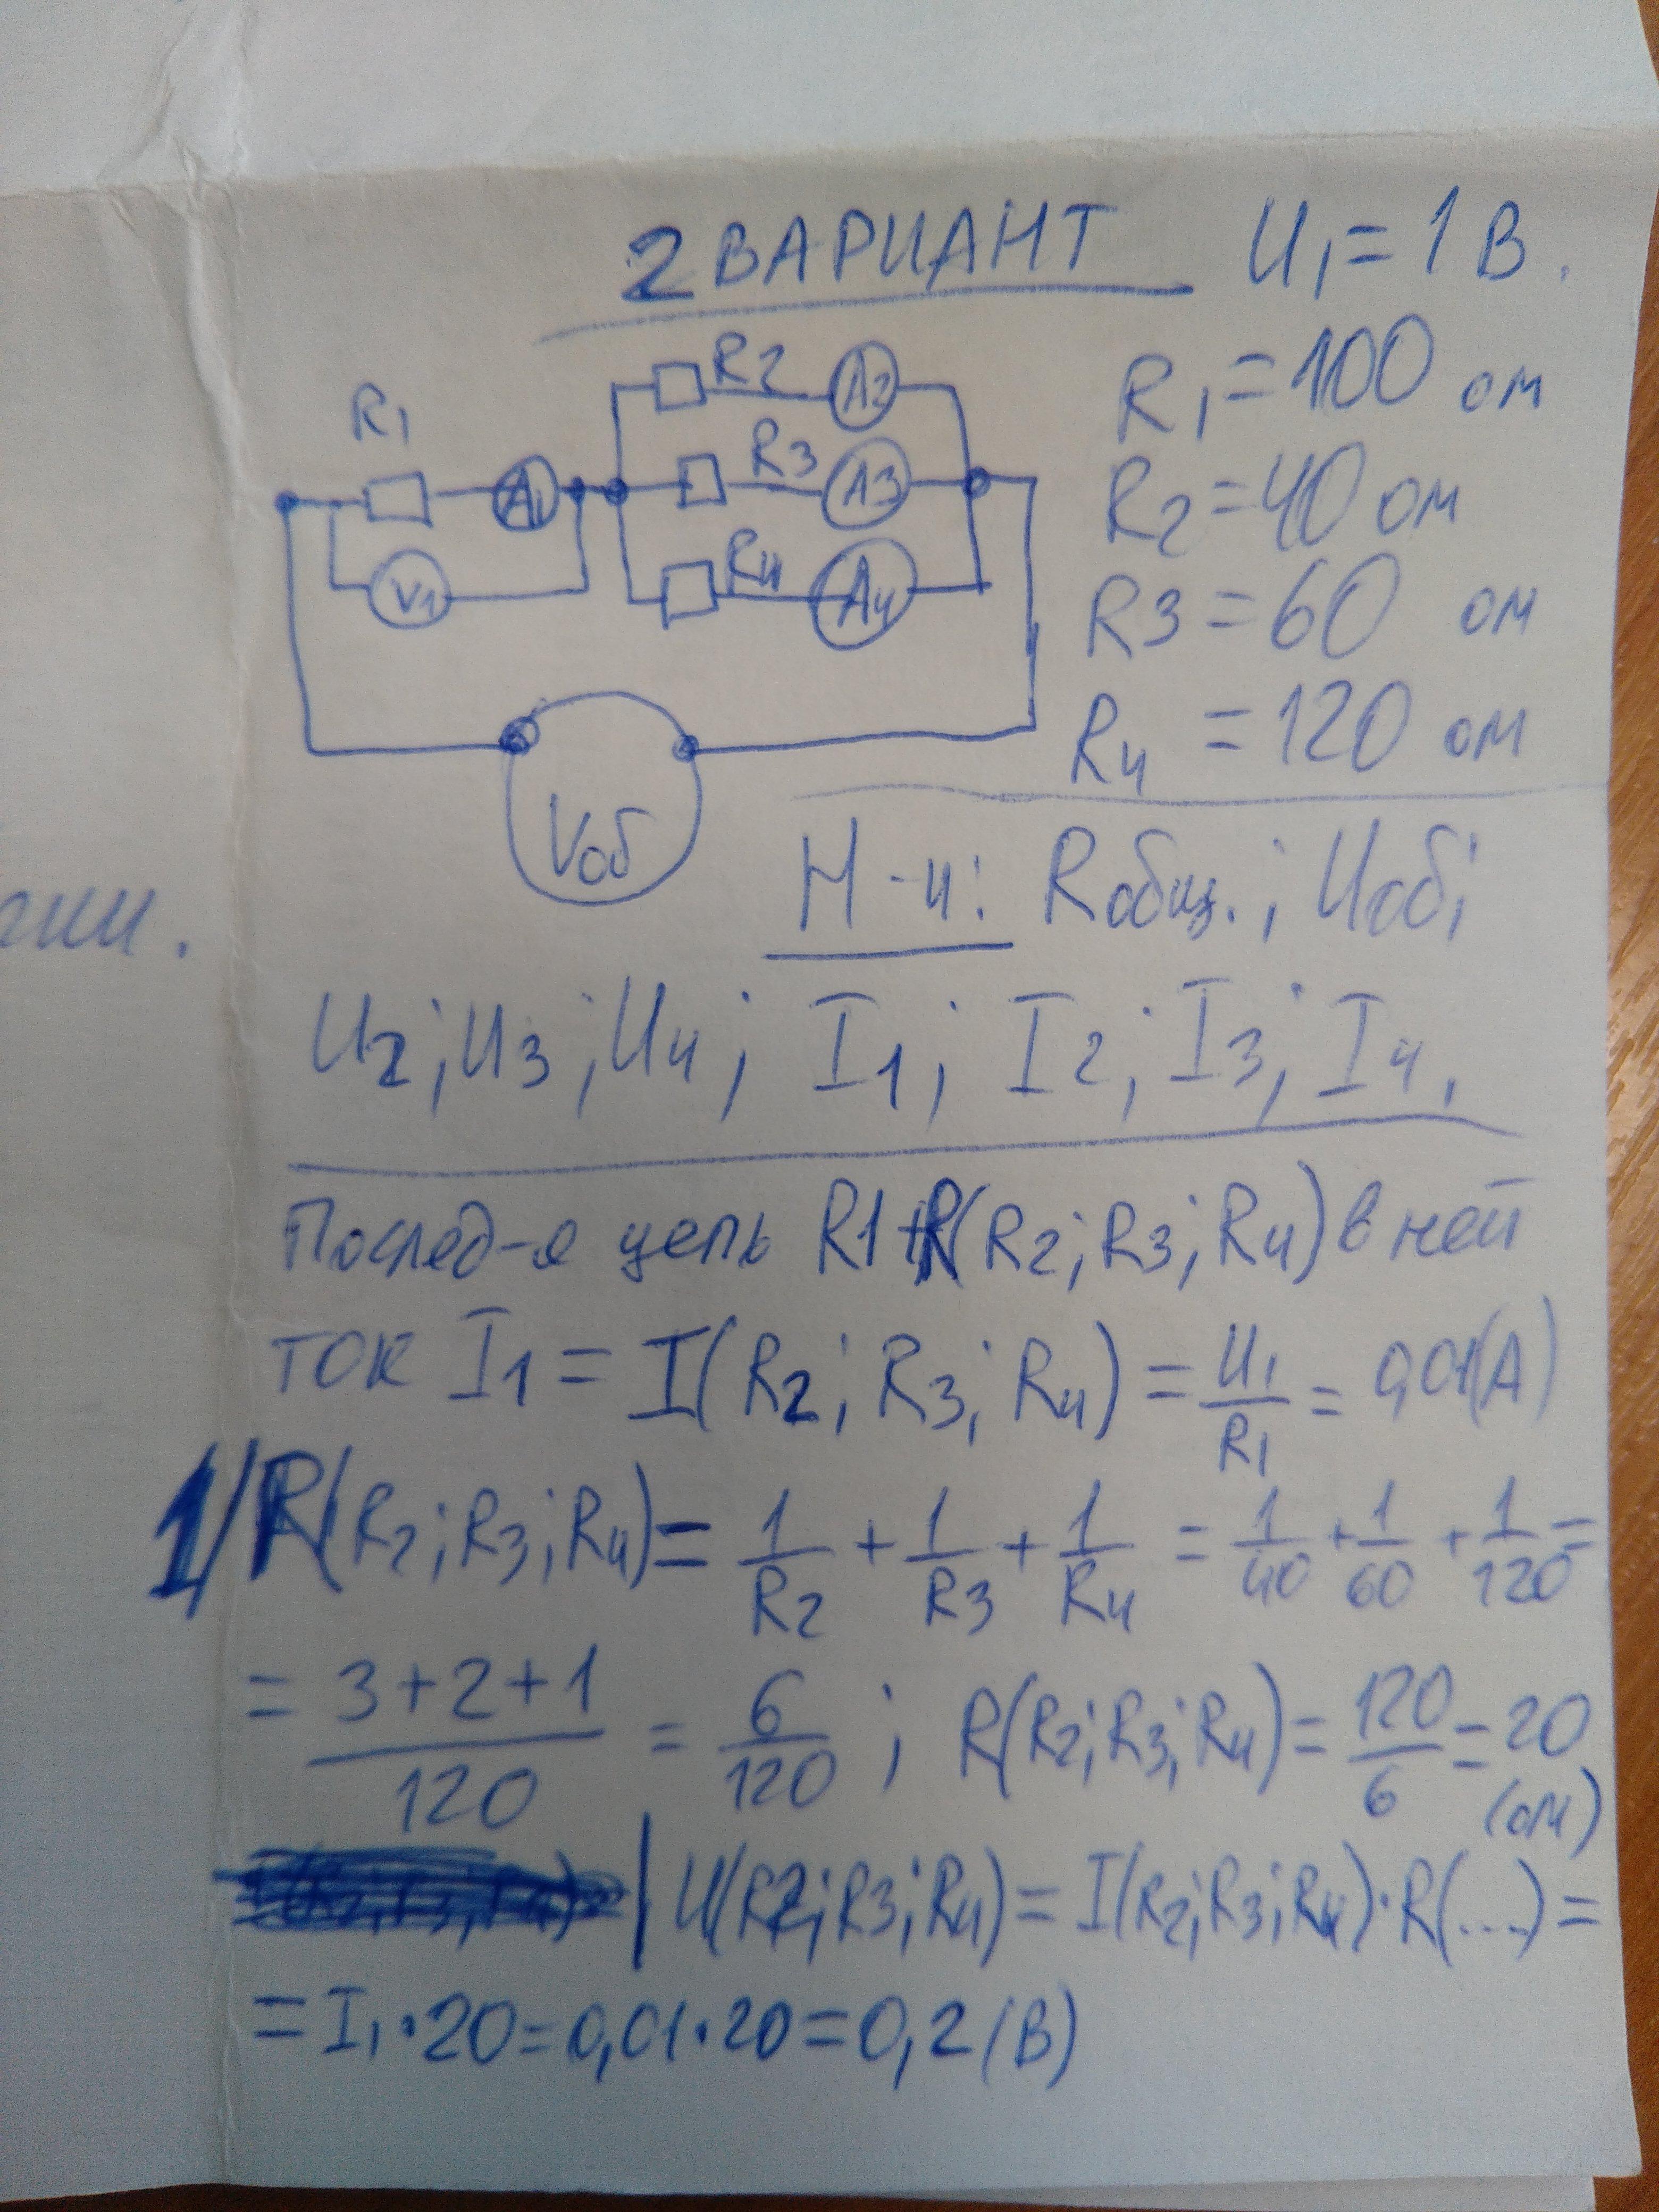 2 ВАРИАНТ U1 = 1 В.
R1
R2
A2
R1 = 100 ом
A1
R3
A3
R2 = 40 ом
V1
R4
A4
R3 = 60 ом
R4 = 120 ом
Vоб
Н-и: Rобщ.; Uоб;
U2; U3; U4; I1; I2; I3; I4.
Послед-я цепь R1 + R(R2; R3; R4) в ней
ток I1 = I(R2; R3; R4) = U1/R1 = 0,01(А)
1/R(R2; R3; R4) = 1/R2 + 1/R3 + 1/R4 = 1/40 + 1/60 + 1/120 =
= 3+2+1/120 = 6/120 ; R(R2; R3; R4) = 120/6 = 20 (ом)
U(R2; R3; R4) = I(R2; R3; R4) · R(...) =
= I1 · 20 = 0,01 · 20 = 0,2 (В)